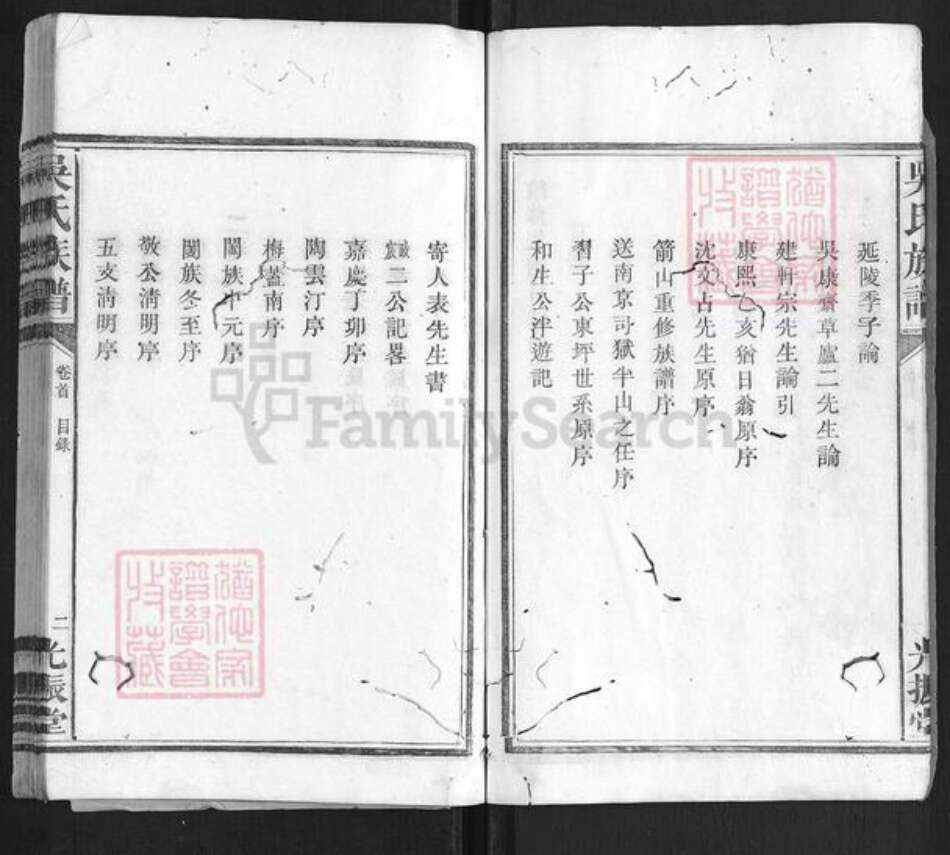 吳氏族譜
光振堂
延陵季子論
吳康齋草廬二先生論
建軒宗先生論引
康熙乙亥猶日翁原序
沈文占先生原序
箭山重修族譜序
送南京司獄半山之任序
習子公東坪世系原序
和生公泮遊記
寄人表先生書
二公記畧
嘉慶丁卯序
陶雲汀序
梅蓋南序
闔族中元序
闔族冬至序
敬公清明序
五支清明序
吳氏族譜
卷首 目錄
二
光振堂
FamilySearch